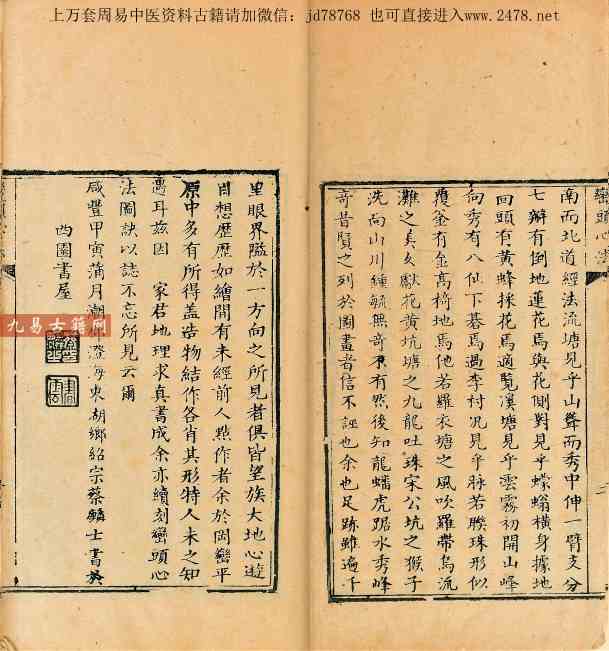 上万套周易中医资料古籍请加微信：jd78768 也可直接进入www.2478.net
巒頭心法
南而北道經法流塘見乎山聳而秀中伸一臂支分
七辦有倒地蓮花焉與花側對見乎蠓螉橫身據地
回頭有黃蜂採花焉適覧溪塘見乎雲霧初開山峰
向秀有八仙下碁焉過李村况見乎脉若聮珠形似
覆釜有金高椅地焉他若羅衣塘之風吹羅帶烏流
灘之美女獻花黃坑塘之九龍吐珠宋公坑之猴子
洗面山川鍾毓無奇不有然後知龍蟠虎踞水秀峰
奇昔賢之列於圖畫者信不誣也余也足跡雖遍千
里眼界隘於一方向之所見者俱皆望族大地心遊
目想歴歴如繪間有未經前人㸃作者余於岡巒平
原中多有所得蓋造物結作各肖其形特人未之知
遇耳兹因 家君地理求真書成余亦續刻巒頭心
法圖訣以誌不忘所見云爾
咸豐甲寅蒲月潮州澄海東湖鄉紹宗蔡麟士書於
西園書屋
九易古籍网